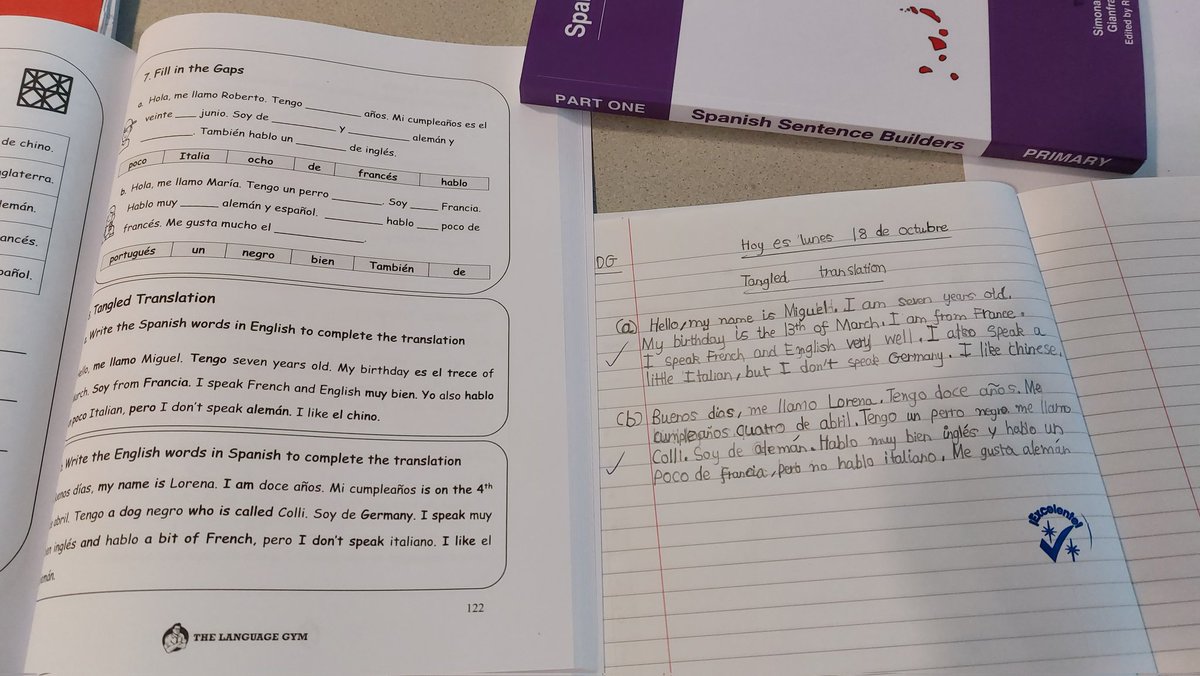 de chino.
glaterra.
lemán.
ancés.
pañol.
7. Fill in the Gaps
a. Hola, me llamo Roberto. Tengo __________ años. Mi cumpleaños es el
veinte ____ junio. Soy de __________ y __________ alemán y
__________. También hablo un ________ de inglés.
poco Italia ocho de francés hablo
b. Hola, me llamo María. Tengo un perro ________. Soy ____ Francia.
Hablo muy ______ alemán y español. ________ hablo ____ poco de
francés. Me gusta mucho el ______________.
portugués un negro bien También de
Tangled Translation
Write the Spanish words in English to complete the translation
lo, me llamo Miguel. Tengo seven years old. My birthday es el trece of
rch. Soy from Francia. I speak French and English muy bien. Yo also hablo
poco Italian, pero I don't speak alemán. I like el chino.
Write the English words in Spanish to complete the translation
enos días, my name is Lorena. I am doce años. Mi cumpleaños is on the 4th
abril. Tengo a dog negro who is called Colli. Soy de Germany. I speak muy
en inglés and hablo a bit of French, pero I don't speak italiano. I like el
mán.
122
THE LANGUAGE GYM
Spa
PART ONE
Spanish Sentence Builders
PRIMARY
Simona
Gianfra
Edited by R
DG
Hoy es lunes 18 de octubre
Tangled translation
(a) Hello, my name is Miguel. I am seven years old.
My birthday is the 13th of March. I am from France.
I speak French and English very well. I also speak a
little Italian, but I don't speak Germany. I like chinese.
(b) Buenos días, me llamo Lorena. Tengo doce años. Me
cumpleaños quatro de abril. Tengo un perro negro me llamo
Colli. Soy de alemán. Hablo muy bien inglés y hablo un
poco de francia, pero no hablo italiano. Me gusta alemán
¡Excelente!